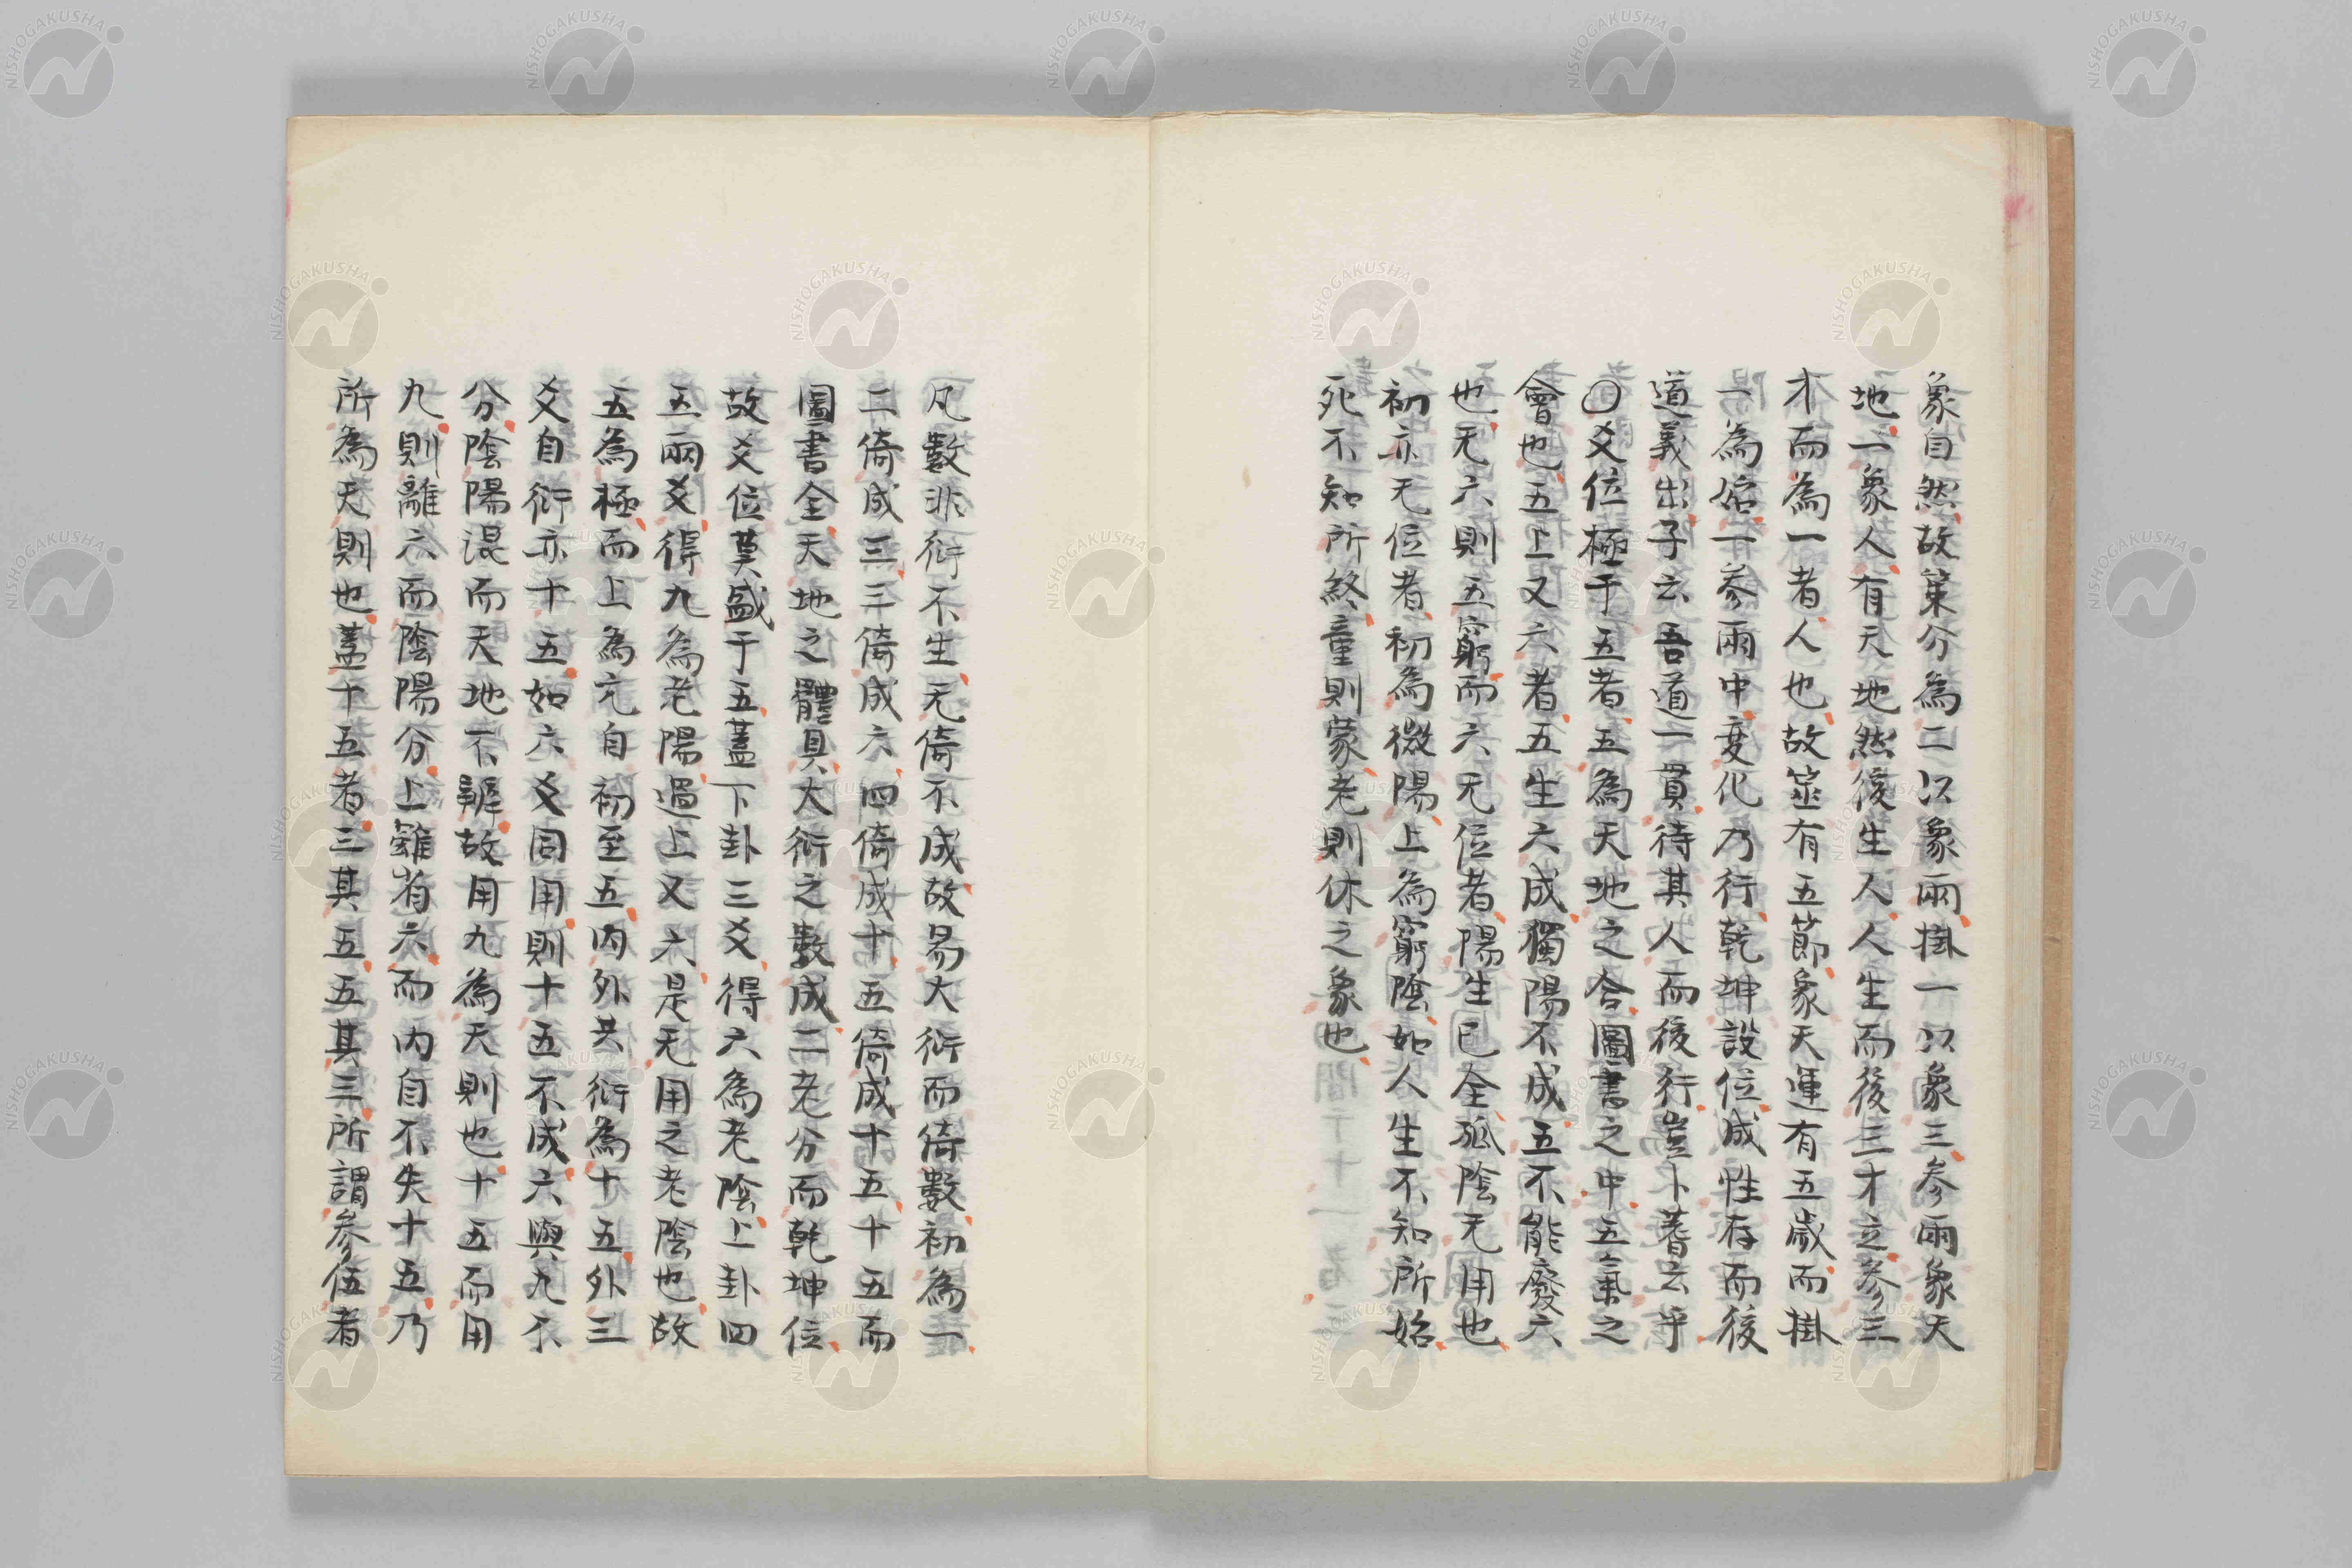 象自然故策分為二以象兩掛一以象三参兩象天
地一象人有天地然後生人人生而後三才立参三
才而為一者人也故筮有五節象天運有五歳而掛
一為始一参兩中変化乃行乾坤設位成性存而後
道義出子云吾道一貫待其人而後行豈卜蓍云乎
〇爻位極于五者五為天地之合圖書之中五氣之
會也五上又六者五生六成獨陽不成五不能廢六
也无六則五窮而六无位者陽生已全孤陰无用也
初亦无位者初為微陽上為窮陰如人生不知所始
死不知所終童則蒙老則休之象也
凡數非衍不生无倚不成故易大衍而倚數初為一
二倚成三三倚成六四倚成十五倚成十五十五而
圖書全天地之體具大衍之數成二老分而乾坤位
故爻位莫盛于五蓋下卦三爻得六為老陰上卦四
五兩爻得九為老陽過上又六是无用之老陰也故
五為極而上為亢自初至五内外共衍為十五外三
爻自衍亦十五如六爻同用則十五不成六與九不
分陰陽混而天地不辨故用九為天則也十五而用
九則離六而陰陽分上雖有六而内自不失十五乃
所為天則也蓋十五者三其五五其三所謂参伍者
NISHOGAKUSHA